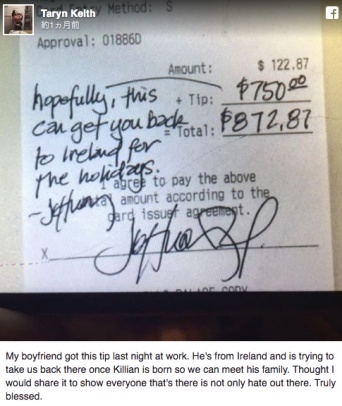 Taryn Keith
約1ヵ月前
Method: S
Approval: 01886D
Amount: $ 122.87
+ Tip: $750.00
= Total: $872.87
hopefully, this
can get you back
to Ireland for
the holidays.
I agree to pay the above
amount according to the
card issuer agreement.
X
My boyfriend got this tip last night at work. He's from Ireland and is trying to
take us back there once Killian is born so we can meet his family. Thought I
would share it to show everyone that's there is not only hate out there. Truly
blessed.